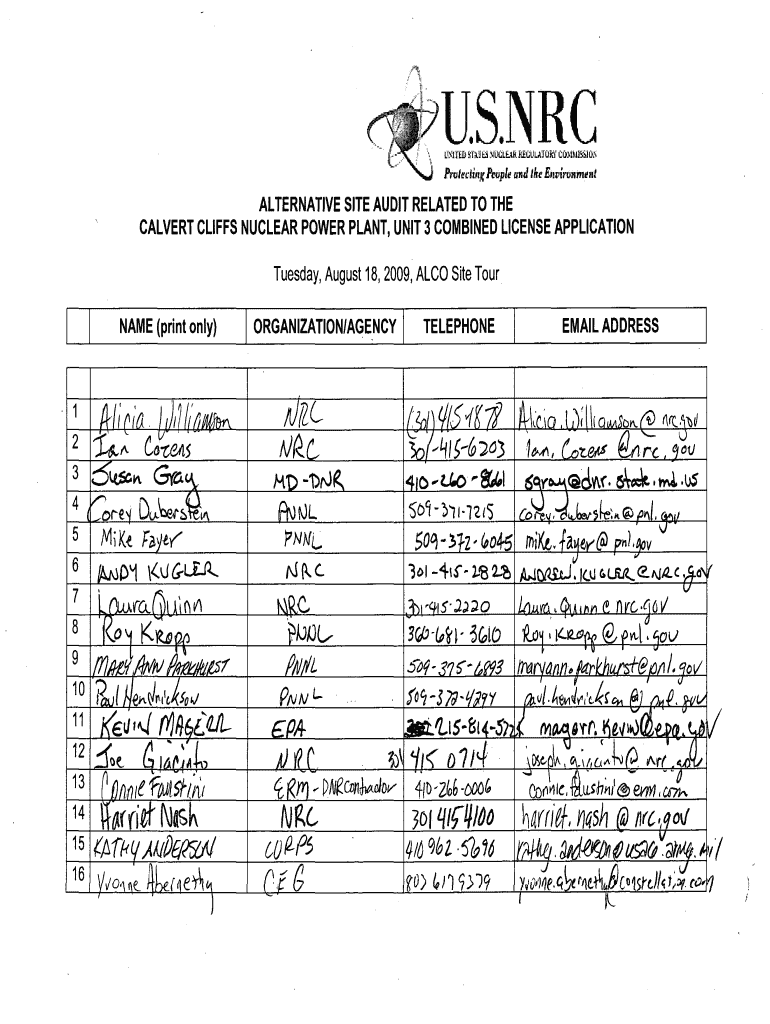 U.S.NRC
UNITED STATES NUCLEAR REGULATORY COMMISSION
Protecting People and the Environment
ALTERNATIVE SITE AUDIT RELATED TO THE
CALVERT CLIFFS NUCLEAR POWER PLANT, UNIT 3 COMBINED LICENSE APPLICATION
Tuesday, August 18, 2009, ALCO Site Tour
NAME (print only) ORGANIZATION/AGENCY TELEPHONE EMAIL ADDRESS
1 Alicia Williamson NRC (301)415-1878 Alicia.Williamson@nrc.gov
2 Ian Cozens NRC 301-415-6203 Ian.Cozens@nrc.gov
3 Susan Gray MD-DNR 410-260-8661 sgray@dnr.state.md.us
4 Corey Duberstein PNNL 509-371-7215 corey.duberstein@pnl.gov
5 Mike Fayer PNNL 509-372-6045 mike.fayer@pnl.gov
6 ANDY KUGLER NRC 301-415-2828 ANDREW.KUGLER@NRC.GOV
7 Laura Quinn NRC 301-415-2220 Laura.Quinn@nrc.gov
8 Roy Kropp PNNL 360-681-3610 Roy.Kropp@pnl.gov
9 MARY ANN PARKHURST PNNL 509-375-6893 maryann.parkhurst@pnl.gov
10 Paul Hendrickson PNNL 509-372-4294 paul.hendrickson@pnl.gov
11 KEVIN EPA magerr.kevin@epa.gov
12 Joe Giacinto NRC 301 415 0714 joseph.giacinto@nrc.gov
13 Connie Faustini ERM-DNR Contractor 410-266-0006 connie.faustini@erm.com
14 Harriet Nash NRC 301 415 4100 harriet.nash@nrc.gov
15 KATHY ANDERSON CORPS 410 962-5690 kathy.anderson@usace.army.mil
16 Yvonne Abernethy CEG 803 6179379 yvonne.abernethy@constellation.com